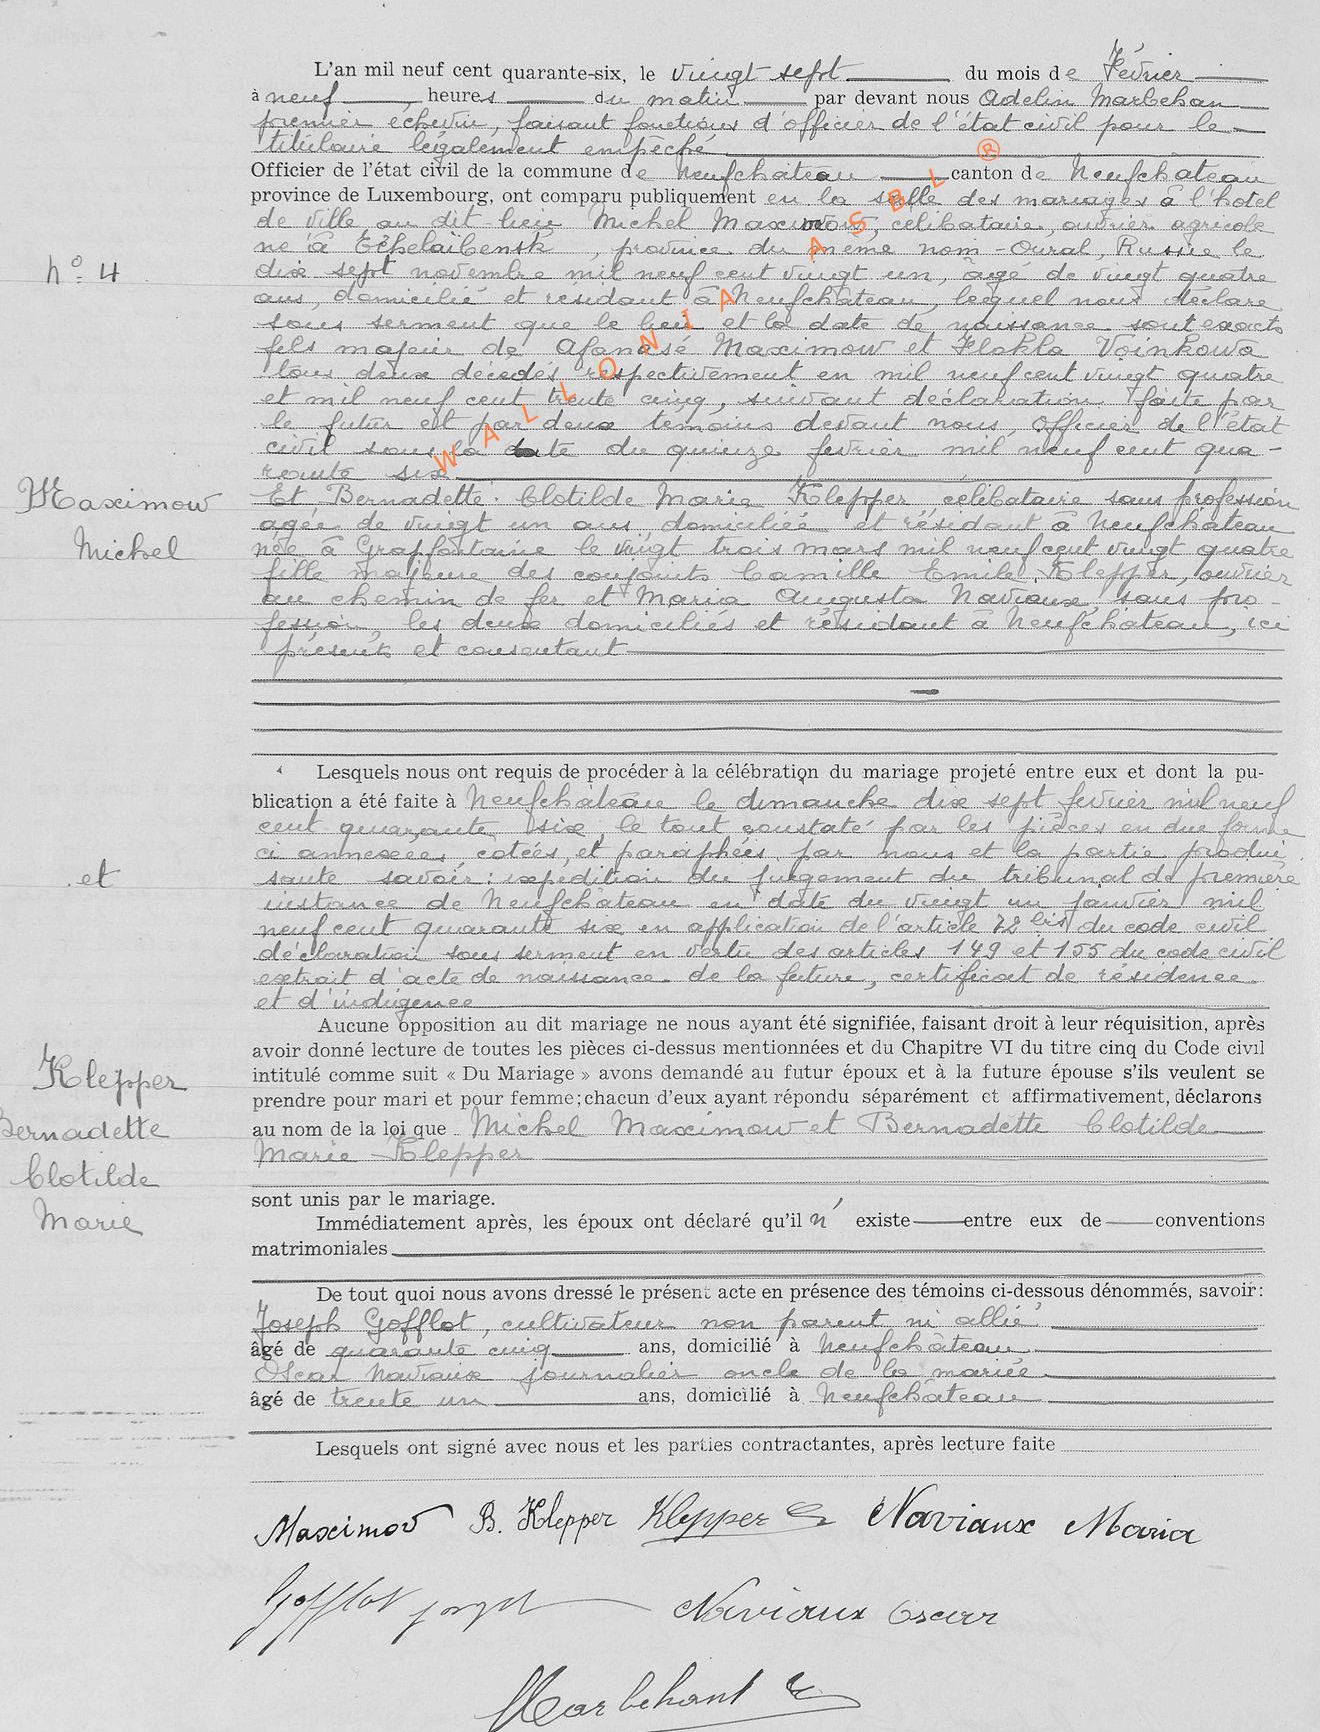 L'an mil neuf cent quarante-six, le vingt sept du mois de Février
à neuf heures du matin par devant nous Adelin Marbehan
premier échevin, faisant fonctions d'officier de l'état civil pour le
titulaire légalement empêché
Officier de l'état civil de la commune de Neufchâteau canton de Neufchâteau
province de Luxembourg, ont comparu publiquement en la salle des mariages à l'hotel
de ville au dit lieu Michel Maximow, celibataire, ouvrier agricole
né à Echelaibensk, province du même nom - Oural, Russie le
dix sept novembre mil neuf cent vingt un, âgé de vingt quatre
nº 4
ans, domicilié et résidant à Neufchâteau, lequel nous déclare
sous serment que le lieu et la date de naissance sont exacts
fils majeur de Afanasé Maximow et Flokla Voinkowa
tous deux décedés respectivement en mil neuf cent vingt quatre
et mil neuf cent trente cinq, suivant déclaration faite par
le futur et par deux temoins devant nous, Officier de l'état
civil sous la date du quinze fevrier mil neuf cent qua-
rante six
WALLONIA ASBL ®
Maximow
Michel
Et Bernadette Clotilde Marie Klepper, célibataire sans profession
agée de vingt un ans domiciliée et résidant à Neufchâteau
née à Grapfontaine le vingt trois mars mil neuf cent vingt quatre
fille majeure des conjoints Camille Emile Klepper, ouvrier
au chemin de fer et Maria Augusta Naviaux, sans pro-
fession, les deux domiciliés et résidant à Neufchâteau, ici
présents et consentant
Lesquels nous ont requis de procéder à la célébration du mariage projeté entre eux et dont la pu-
blication a été faite à Neufchâteau le dimanche dix sept fevrier mil neuf
cent quarante six, le tout constaté par les pièces en due forme
ci annexées, cotées, et paraphées par nous et la partie produi
et
sante savoir: expedition du jugement du tribunal de première
instance de Neufchâteau en date du vingt un janvier mil
neuf cent quarante six en application de l'article 72 bis du code civil
déclaration sous serment en vertu des articles 149 et 155 du code civil
extrait d'acte de naissance de la future, certificat de résidence
et d'indigence
Aucune opposition au dit mariage ne nous ayant été signifiée, faisant droit à leur réquisition, après
avoir donné lecture de toutes les pièces ci-dessus mentionnées et du Chapitre VI du titre cinq du Code civil
intitulé comme suit « Du Mariage » avons demandé au futur époux et à la future épouse s'ils veulent se
prendre pour mari et pour femme; chacun d'eux ayant répondu séparément et affirmativement, déclarons
au nom de la loi que Michel Maximow et Bernadette Clotilde
Marie Klepper
Klepper
Bernadette
Clotilde
Marie
sont unis par le mariage.
Immédiatement après, les époux ont déclaré qu'il n' existe entre eux de conventions
matrimoniales
De tout quoi nous avons dressé le présent acte en présence des témoins ci-dessous dénommés, savoir:
Joseph Gofflot, cultivateur non parent ni allié
âgé de quarante cinq ans, domicilié à Neufchâteau
Oscar Naviaux journalier oncle de la mariée
âgé de trente un ans, domicilié à Neufchâteau
Lesquels ont signé avec nous et les parties contractantes, après lecture faite
Maximov B. Klepper Klepper C Naviaux Maria
Gofflot Joseph Naviaux Oscar
Marbehant